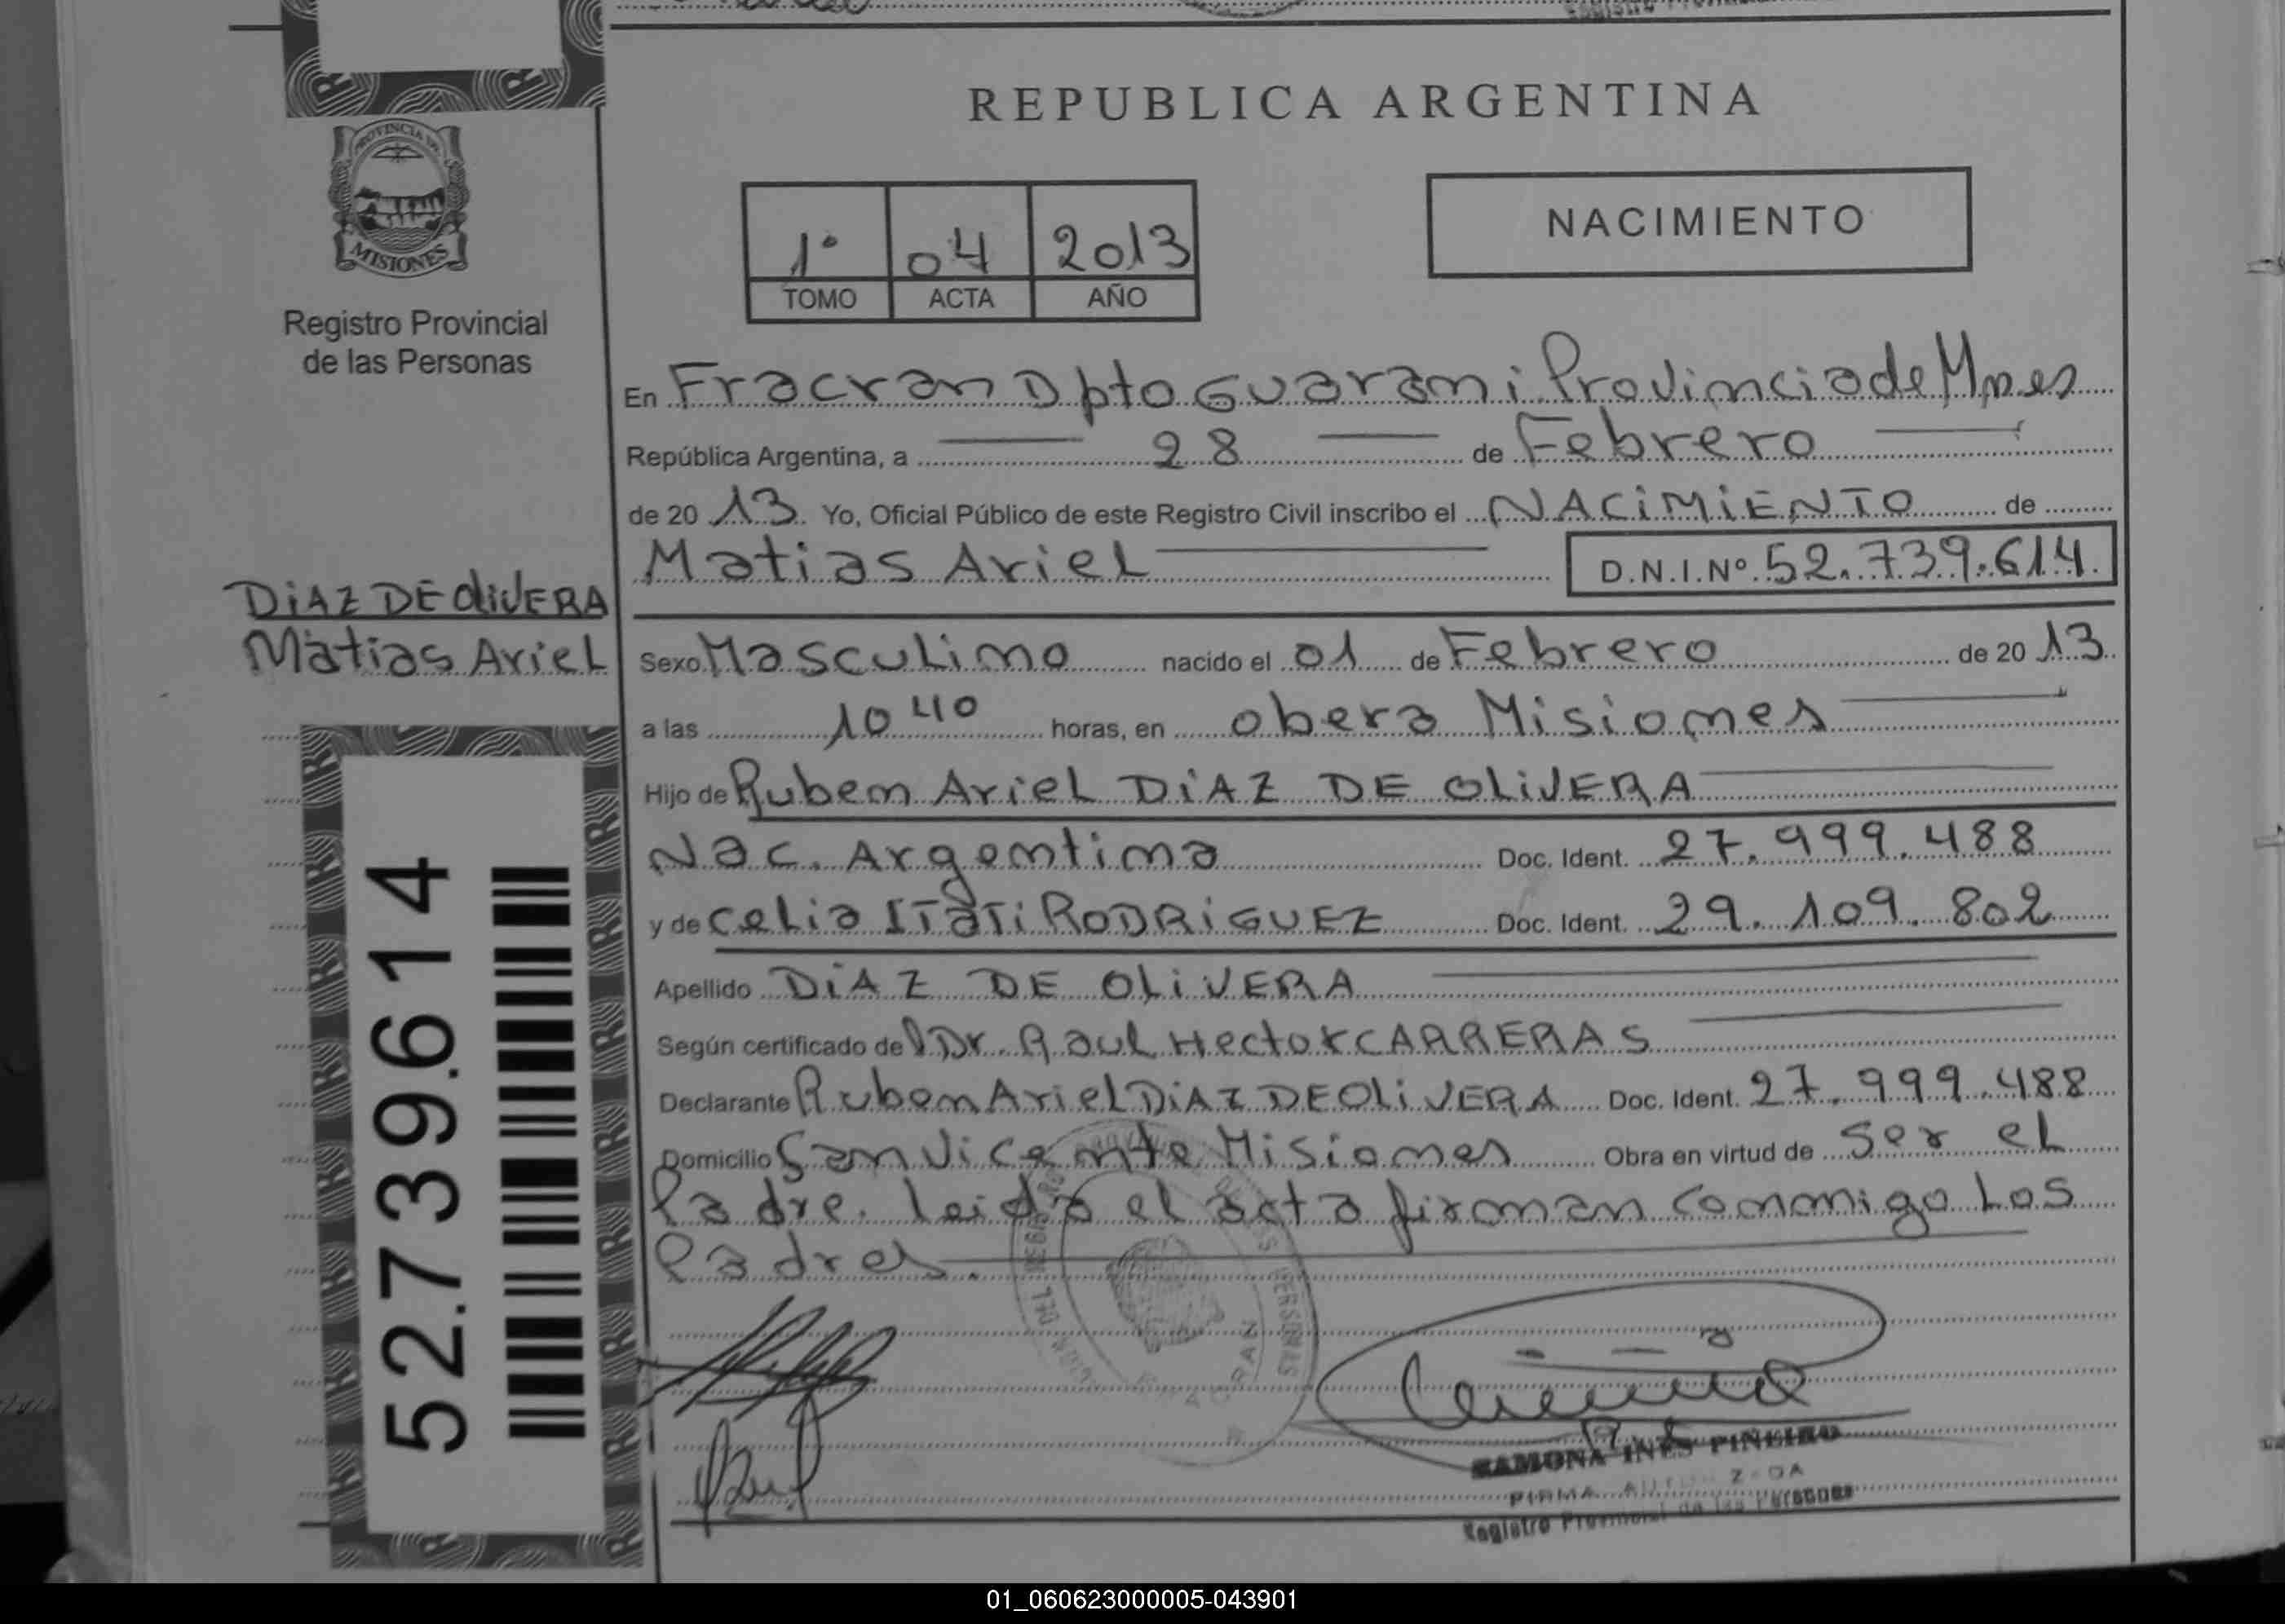 REPUBLICA ARGENTINA
PROVINCIA DE
MISIONES
Registro Provincial
de las Personas
1° 04 2013
TOMO ACTA AÑO
NACIMIENTO
En Fracran Dpto Guarani Provincia de Mnes
República Argentina, a 28 de Febrero
de 20 13 Yo, Oficial Público de este Registro Civil inscribo el NACIMIENTO de
Matias Ariel D.N.I.Nº 52.739.614
DIAZ DE OLIVERA
Matias Ariel
Sexo Masculino nacido el 01 de Febrero de 20 13
a las 10 40 horas, en obera Misiones
Hijo de Ruben Ariel DIAZ DE OLIVERA
Nac. Argentina Doc. Ident. 27.999.488
y de Celia ITATI RODRIGUEZ Doc. Ident. 29.109.802
Apellido DIAZ DE OLIVERA
Según certificado del Dr. Raul Hector CARRERAS
Declarante Ruben Ariel DIAZ DE OLIVERA Doc. Ident. 27.999.488
Domicilio San Vicente Misiones Obra en virtud de Ser el
Padre. leida el acta firman conmigo los
Padres.
52.739.614
RAMONA INES PIÑEIRO
FIRMA AUTORIZADA
Registro Provincial de las Personas
01_060623000005-043901